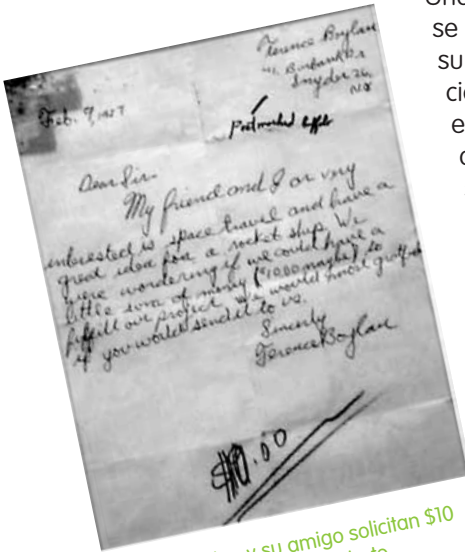 Terence Boylan
Burbank Dr
Snyder 26,
N.Y.
Feb. 9, 1957
Postmarked
Dear Sir
My friend and I ar very
intrested is space travel and have a
great idea for a rocket ship. We
were wondering if we could have a
little sum of money ($10.00 maybe) to
fulfill our project. We would most
if you would send it to us.
Sincerly
Terence Boylan
$10.00
y su amigo solicitan $10
se
su
cie
e